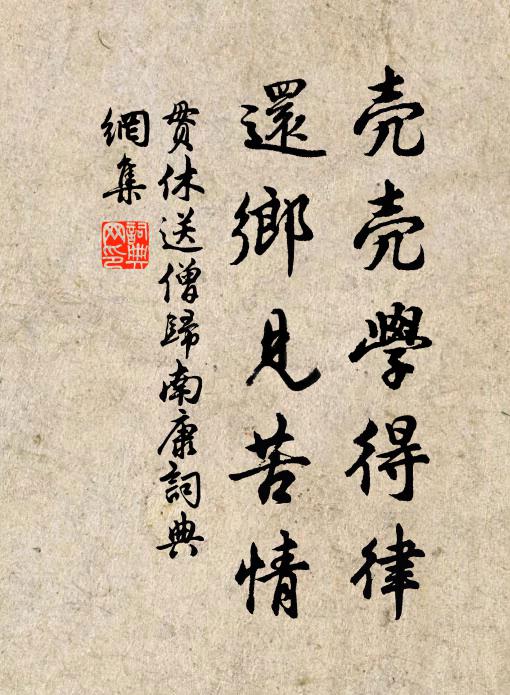 壳壳學得律
還鄉見苦情
貫休送僧歸南康詞典
網集
詞典
网印